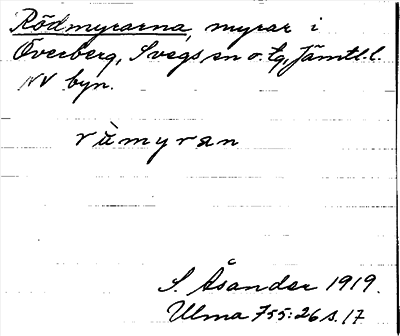 Rödmyrarna, myrar i
Överberg, Svegs sn o. tg, Jämtl. l.
NV byn.
rùmyran
S. Åsander 1919.
Ulma 755:26 s. 17